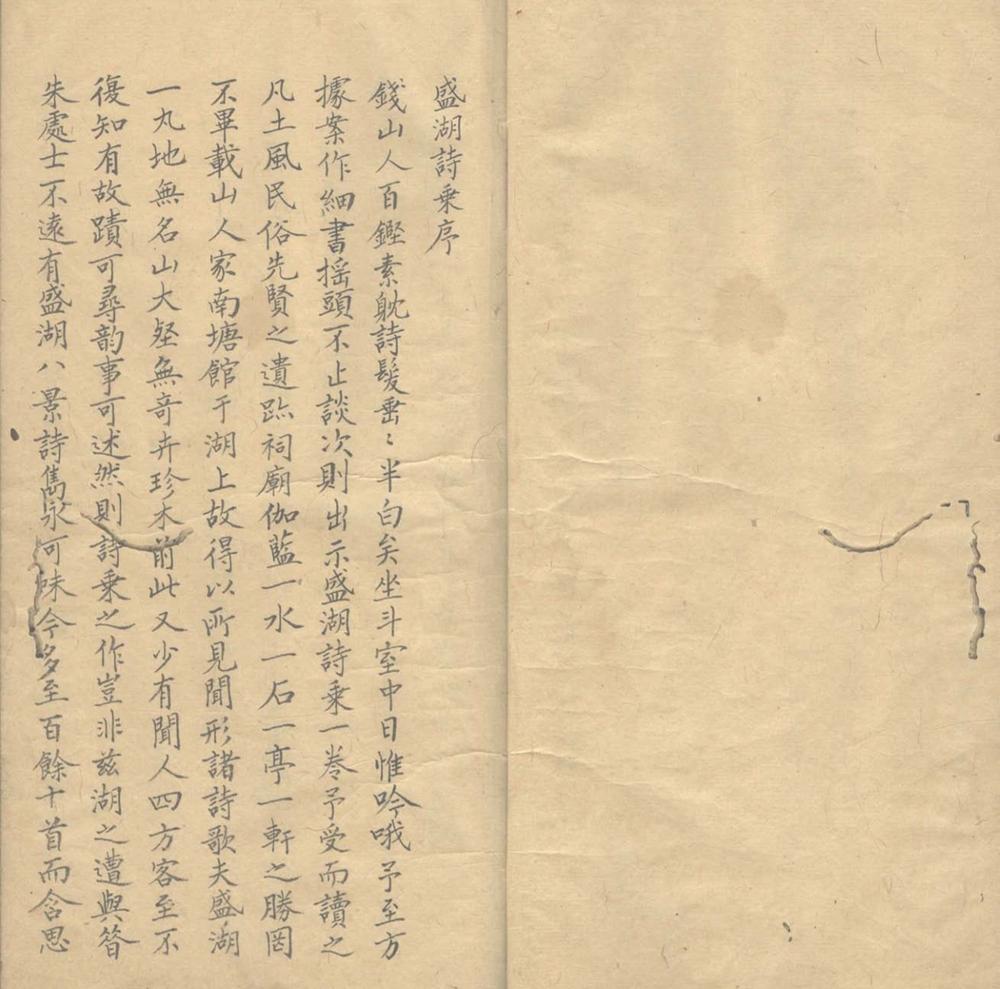 盛湖詩乘序
錢山人百鏗素躭詩髮垂〻半白矣坐斗室中日惟吟哦予至方
據案作細書摇頭不止談次則出示盛湖詩乘一卷予受而讀之
凡土風民俗先賢之遺跡祠廟伽藍一水一石一亭一軒之勝罔
不畢載山人家南塘館于湖上故得以所見聞形諸詩歌夫盛湖
一丸地無名山大壑無奇卉珍木前此又少有聞人四方客至不
復知有故蹟可尋韵事可述然則詩乘之作豈非兹湖之遭與昝
朱處士不遠有盛湖八景詩雋永可味今多至百餘十首而含思